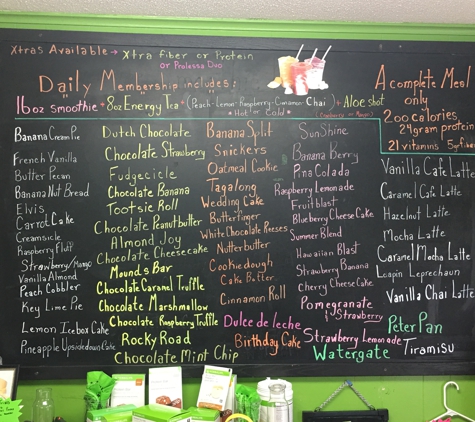 Xtras Available → Xtra fiber or Protein
or Prolessa Duo
Daily Membership includes:
16oz smoothie + 8oz Energy Tea + (Peach-Lemon-Raspberry-Cinnamon-Chai) + Aloe shot
* Hot or Cold *
A complete Meal
only
200 calories,
24gram protein
21 vitamins
Banana Cream Pie
French Vanilla
Butter Pecan
Banana Nut Bread
Elvis
Carrot Cake
Creamsicle
Raspberry Fluff
Strawberry/Mango
Vanilla Almond
Peach Cobbler
Key Lime Pie
Lemon Icebox Cake
Pineapple Upsidedown Cake
Dutch Chocolate
Chocolate Strawberry
Fudgecicle
Chocolate Banana
Tootsie Roll
Chocolate Peanutbutter
Almond Joy
Chocolate Cheesecake
Mounds Bar
Chocolate Caramel Truffle
Chocolate Marshmallow
Chocolate Raspberry Truffle
Rocky Road
Chocolate Mint Chip
Banana Split
Snickers
Oatmeal Cookie
Tagalong
Wedding Cake
Butterfinger
White Chocolate Reeses
Nutterbutter
Cookiedough
Cake Batter
Cinnamon Roll
Dulce de leche
Birthday Cake
SunShine
Banana Berry
Pina Colada
Raspberry Lemonade
Fruit blast
Blueberry Cheese Cake
Summer Blend
Hawaiian Blast
Strawberry Banana
Cherry Cheese Cake
Pomegranate
& Strawberry
Strawberry Lemonade
Watergate
Vanilla Cafe Latte
Caramel Cafe Latte
Hazelnut Latte
Mocha Latte
Caramel Mocha Latte
Leapin Leprechaun
Vanilla Chai Latte
Peter Pan
Tiramisu